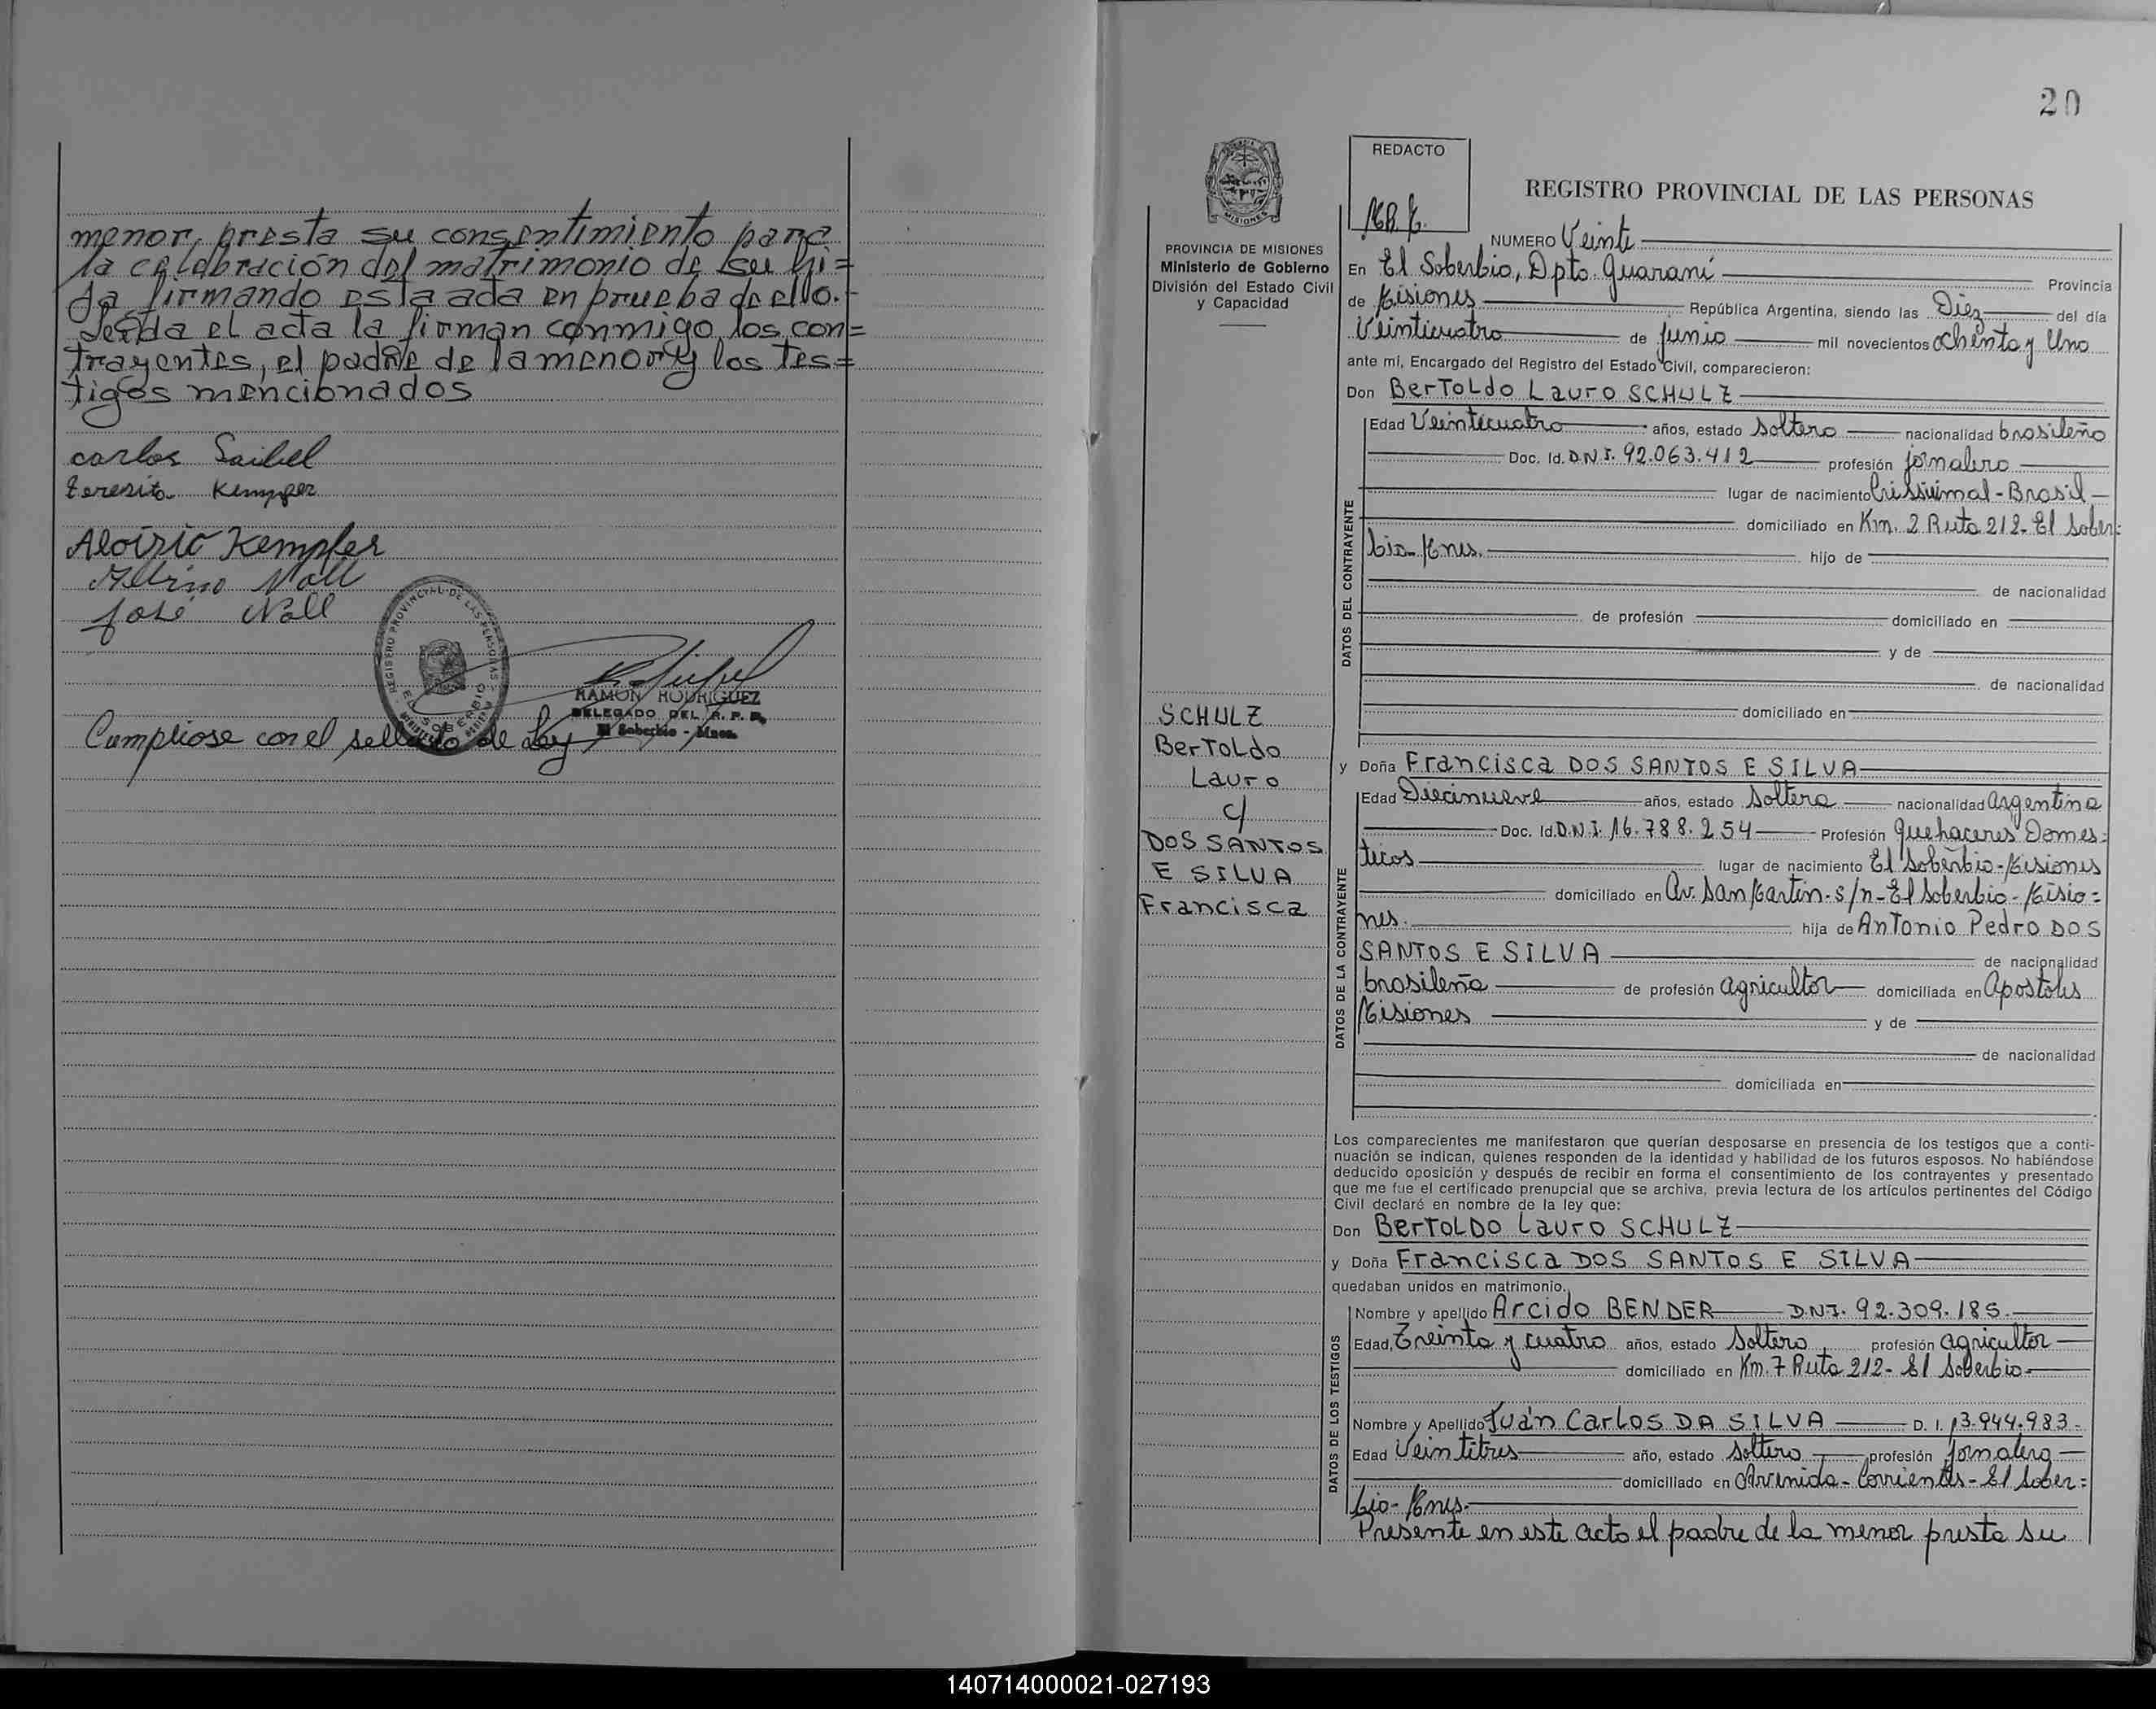 menor, presta su consentimiento para
la celebración del matrimonio de su hi=
ja firmando esta acta en prueba de ello.-
Leída el acta la firman conmigo los con=
trayentes, el padre de la menor y los tes=
tigos mencionados
carlos Saibel
teresita Kempfer
Aloizio Kempfer
Noll
José Noll
REGISTRO PROVINCIAL DE LAS PERSONAS
EL SOBERBIO
RAMON RODRIGUEZ
DELEGADO DEL R. P. P.
El Soberbio - Mnes.
Cumpliose con el sellado de Ley
20
REDACTO
REGISTRO PROVINCIAL DE LAS PERSONAS
MISIONES
PROVINCIA DE MISIONES
Ministerio de Gobierno
División del Estado Civil
y Capacidad
NUMERO Veinte
En El Soberbio, Dpto. Guaraní Provincia
de Misiones República Argentina, siendo las Diez del día
Veinticuatro de Junio mil novecientos ochenta y Uno
ante mí, Encargado del Registro del Estado Civil, comparecieron:
Don Bertoldo Lauro SCHULZ
DATOS DEL CONTRAYENTE
Edad Veinticuatro años, estado Soltero nacionalidad brasileño
Doc. Id. D.N.I. 92.063.412 profesión jornalero
lugar de nacimiento Crissiumal - Brasil
domiciliado en Km. 2 Ruta 212 - El Sober=
bio - Mnes. hijo de
de nacionalidad
de profesión domiciliado en
y de
de nacionalidad
domiciliado en
SCHULZ
Bertoldo
Lauro
c/
DOS SANTOS
E SILVA
Francisca
y Doña Francisca DOS SANTOS E SILVA
DATOS DE LA CONTRAYENTE
Edad Diecinueve años, estado Soltera nacionalidad argentina
Doc. Id. D.N.I. 16.788.254 Profesión Quehaceres Domes=
ticos lugar de nacimiento El Soberbio - Misiones
domiciliado en Av. San Martín - s/n - El Soberbio - Misio=
nes. hija de Antonio Pedro DOS
SANTOS E SILVA de nacionalidad
brasileña de profesión agricultor domiciliada en Apostoles
Misiones y de
de nacionalidad
domiciliada en
Los comparecientes me manifestaron que querían desposarse en presencia de los testigos que a conti-
nuación se indican, quienes responden de la identidad y habilidad de los futuros esposos. No habiéndose
deducido oposición y después de recibir en forma el consentimiento de los contrayentes y presentado
que me fue el certificado prenupcial que se archiva, previa lectura de los artículos pertinentes del Código
Civil declaré en nombre de la ley que:
Don Bertoldo Lauro SCHULZ
y Doña Francisca DOS SANTOS E SILVA
quedaban unidos en matrimonio.
DATOS DE LOS TESTIGOS
Nombre y apellido Arcido BENDER D.N.I. 92.309.185.
Edad, Treinta y cuatro años, estado Soltero profesión agricultor
domiciliado en Km. 7 Ruta 212 - El Soberbio
Nombre y Apellido Juán Carlos DA SILVA D. I. 13.944.983
Edad Veintitres año, estado Soltero profesión jornalero
domiciliado en Avenida - Corrientes - El Sober=
bio - Mnes.
Presente en este acto el padre de la menor presta su
140714000021-027193